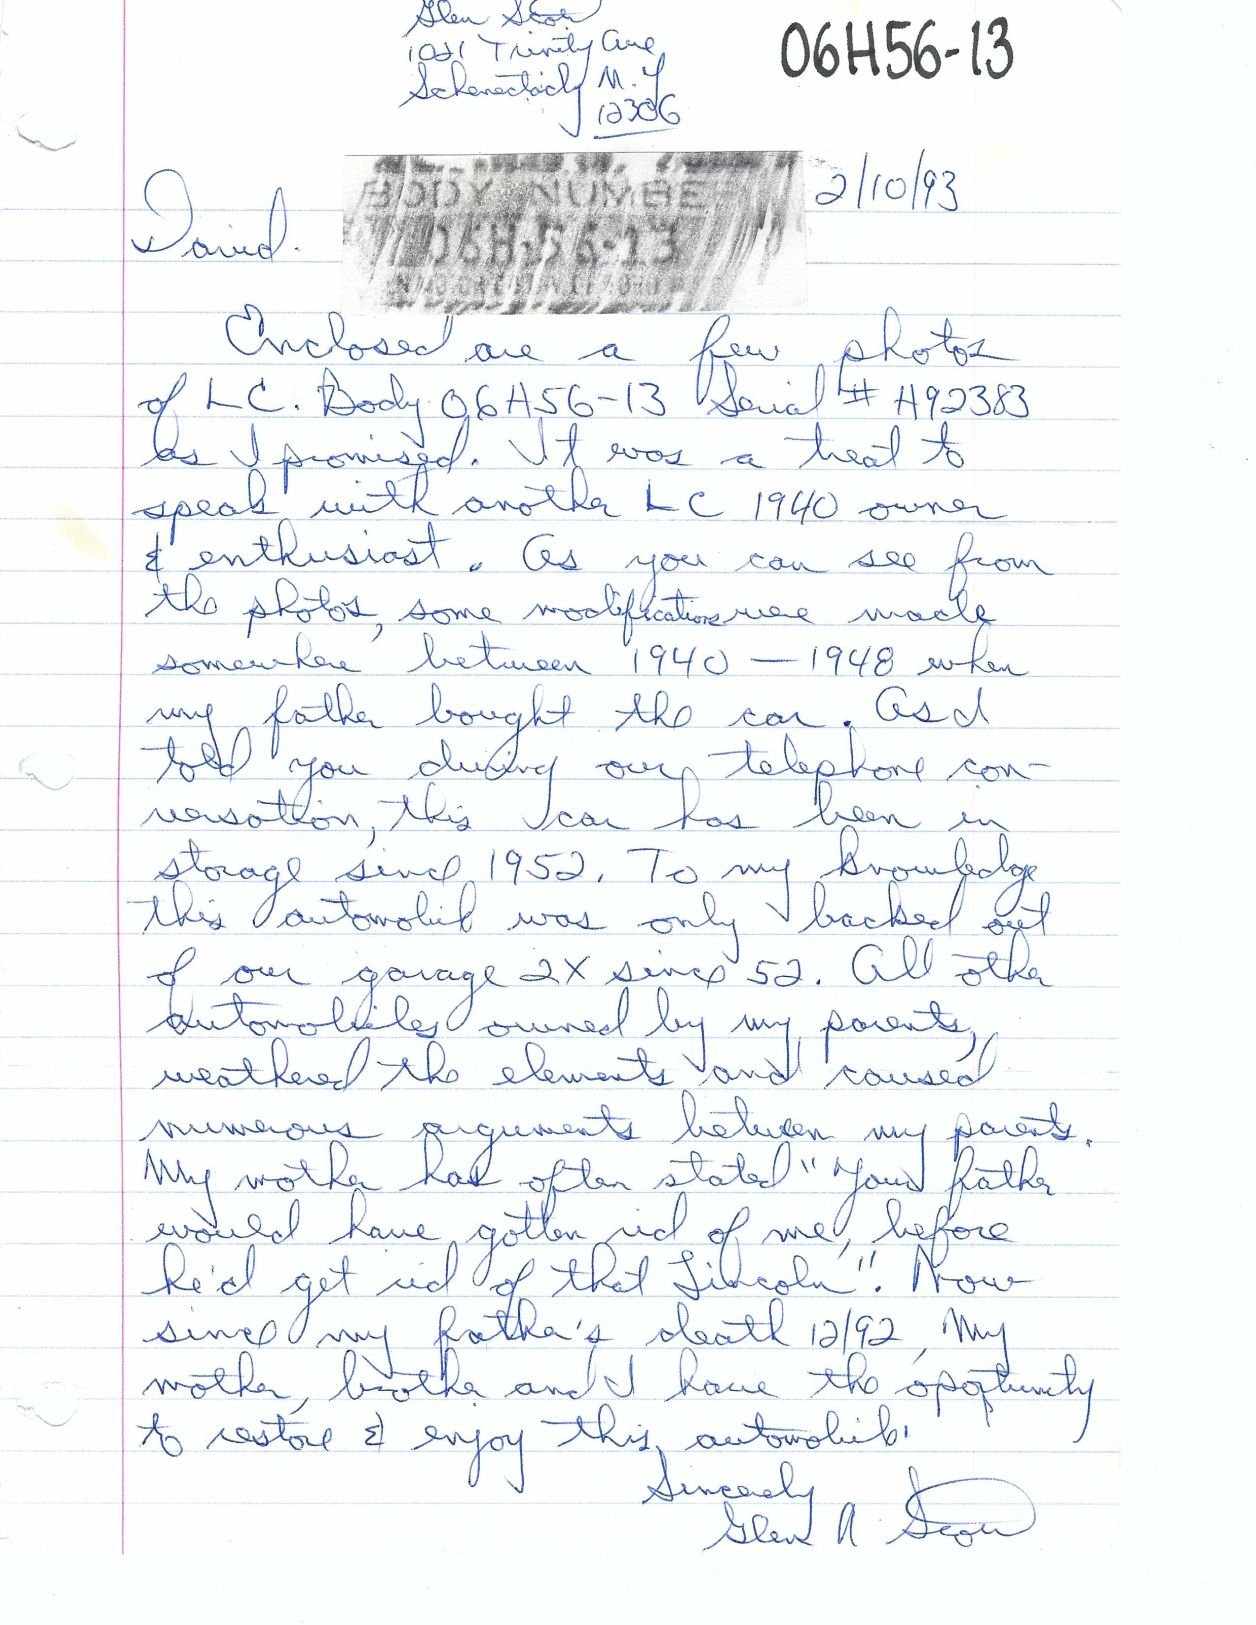 Glen
1021 Trinity Ave
Schenectady N.Y
12306
06H56-13
BODY NUMBE
06H-56-13
2/10/93
David.
Enclosed are a few photos
of LC. Body 06H56-13 Serial # H92383
as I promised. It was a treat to
speak with another LC 1940 owner
& enthusiast. As you can see from
the photos, some modifications were made
somewhere between 1940 — 1948 when
my father bought the car. As I
told you during our telephone con-
versation, this car has been in
storage since 1952. To my knowledge
this automobile was only backed out
of our garage 2X since 52. All other
automobiles owned by my parents,
weathered the elements and caused
numerous arguments between my parents.
My mother has often stated "Your father
would have gotten rid of me, before
he'd get rid of that Lincoln". Now
since my father's death 12/92, My
mother, brother and I have the opportunity
to restore & enjoy this automobile.
Sincerely
Glen A